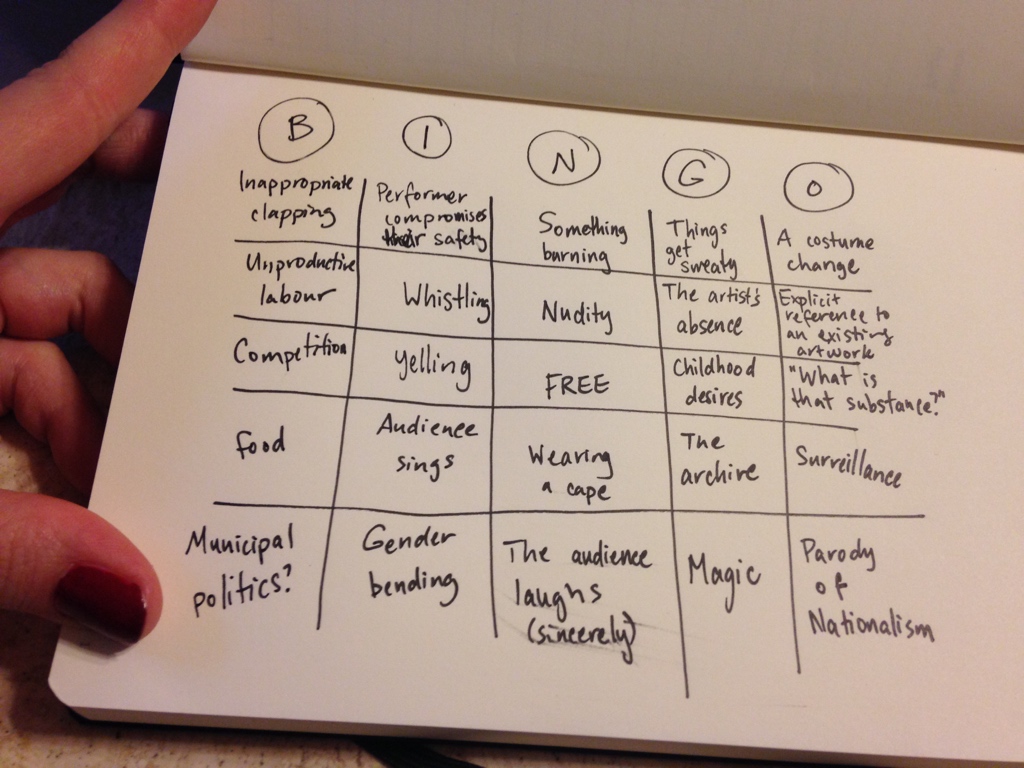 B I N G O
Inappropriate
clapping
Performer
compromises
their safety
Something
burning
Things
get
sweaty
A costume
change
Unproductive
labour
Whistling
Nudity
The artist's
absence
Explicit
reference to
an existing
artwork
Competition
Yelling
FREE
Childhood
desires
"What is
that substance?"
Food
Audience
sings
Wearing
a cape
The
archive
Surveillance
Municipal
politics?
Gender
bending
The audience
laughs
(sincerely)
Magic
Parody
of
Nationalism